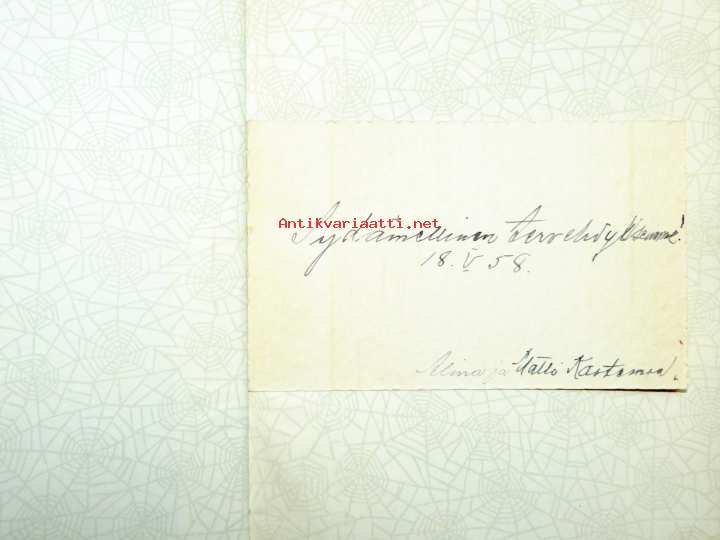 Antikvariaatti.net
Sydämellinen tervehdyksemme!
18. V 58.
Alina ja Kalle